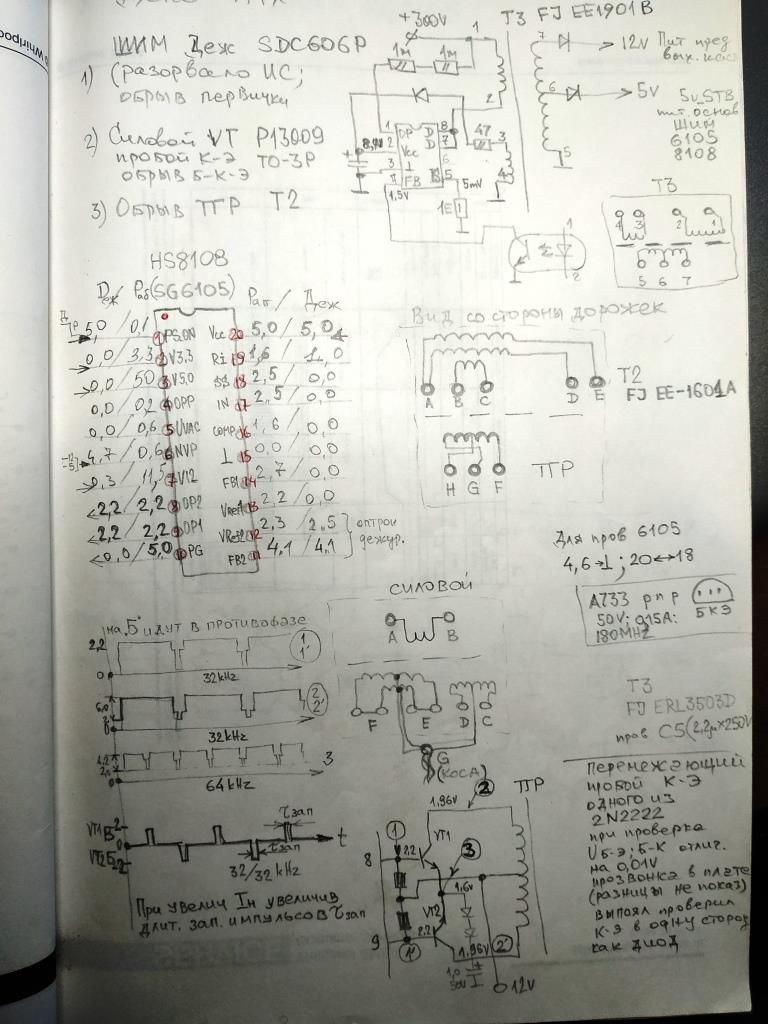 Whirlpoo
ШИМ Деж SDC606P
1) (разорвало ИС;
обрыв первички
2) Силовой VT P13009
пробой К-Э TO-3P
обрыв Б-К-Э
3) Обрыв ПР Т2
+300V
1
T3 FJ EE1901B
1м 1м
2
7
12V Пит пред
вых. кас
6
5V
5V_STB
пит. основ
ШИМ
6105
8108
5
8,9V
1 OP D 8
2 Vcc D 7
3 ⊥ 6
4 FB 5
47
3
4
1,5V
5mV
1E
1
2
T3
4 3 2 1
5 6 7
HS8108
Деж / Раб (SG6105) Рат / Деж
5,0 / 0,1 1 PS.ON Vcc 20 5,0 / 5,0
0,0 / 3,3 2 V3,3 Ri 19 1,6 / 1,0
0,0 / 50 3 V5,0 SS 18 2,5 / 0,0
0,0 / 0,2 4 OPP IN 17 2,5 / 0,0
0,0 / 0,6 5 UVAC COMP 16 1,6 / 0,0
-12 -5 4,7 / 0,6 6 NVP ⊥ 15 0,0 / 0,0
0,3 / 11,5 7 V12 FB1 14 2,7 / 0,0
2,2 / 2,2 8 OP2 VRef1 13 2,2 / 0,0
2,2 / 2,2 9 OP1 VRef2 12 2,3 / 2,5
0,0 / 5,0 10 PG FB2 11 4,1 / 4,1
оптрон
дежур.
Вид со стороны дорожек
A B C D E
T2
FJ EE-1601A
H G F
ПР
Для пров 6105
4,6→⊥; 20↔18
A733 pnp
50V; 0,15A:
180MHz
БКЭ
СИЛОВОЙ
A B
F E D C
G
(КОСА)
на "Б" идут в противофазе
2,2
0
32kHz
1
1'
6,0
0
32kHz
2
2'
0
64kHz
3
VT1Б 2
0
VT2Б 2
τзап
τзап
t
32/32 kHz
При увелич Iн увеличив
длит. зап. импульсов τзап
T3
FJ ERL3503D
пров C5(2,2μ×250V
Перемежающий
пробой К-Э
одного из
2N2222
при проверке
U Б-Э; Б-К отлич.
на 0,01V
прозвонка в плате
(разницы не показ)
выпаял проверил
К-Э в одну сторон
как диод
1,96V
2
ПР
1
VT1
3
8
2,2
1,6V
VT2
9
2,2
1'
1,96V
2'
1,0
50V
12V